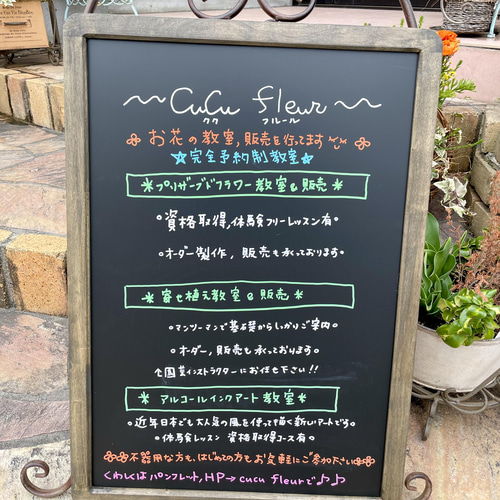 〜CuCu fleur〜
クク フルール
お花の教室,販売を行ってます
☆完全予約制教室☆
＊プリザーブドフラワー教室&販売＊
○資格取得,体験フリーレッスン有○
○オーダー製作,販売も承っております○
＊寄せ植え教室&販売＊
○マンツーマンで基礎からしっかりご案内○
○オーダー,販売も承っております○
園芸インストラクターにお任せ下さい!!
＊アルコールインクアート教室＊
○近年日本でも大人気の風を使って描く新しいアートです
○体験レッスン 資格取得コース有○
不器用な方も、はじめての方もお気軽にご参加下さい
くわしくはパンフレット,HP→cucu fleurで♪♪